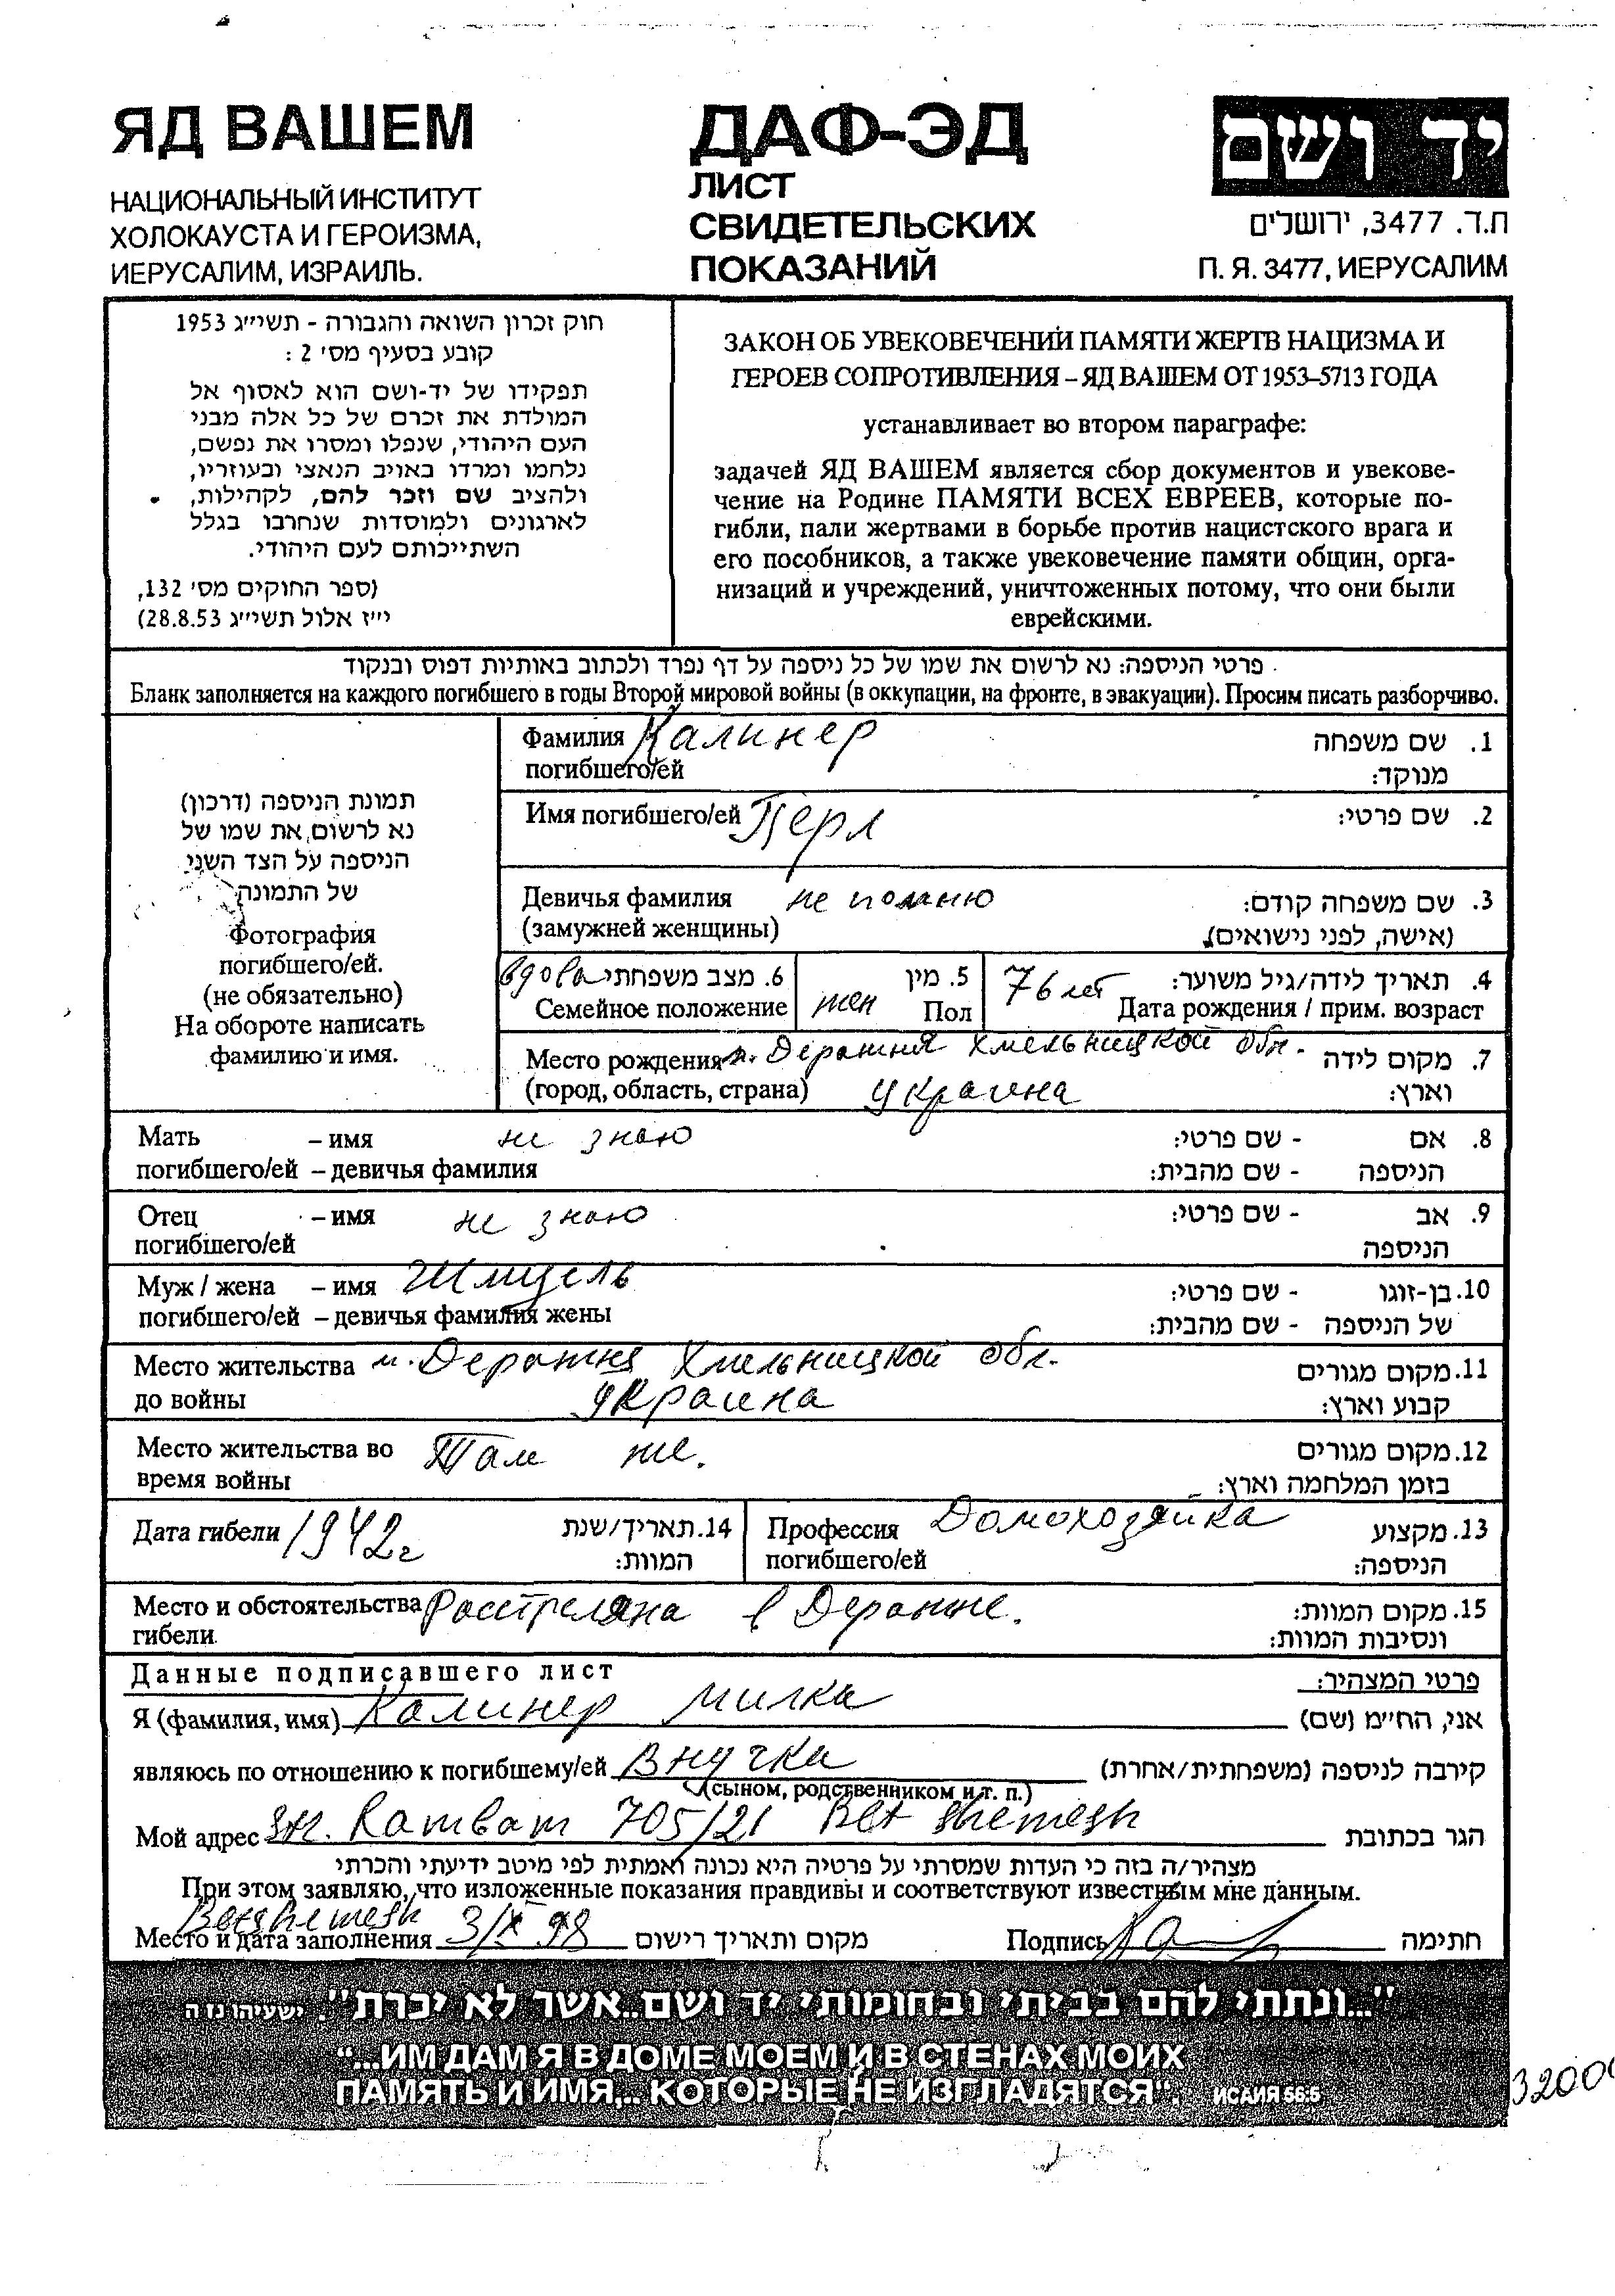 ЯД ВАШЕМ
НАЦИОНАЛЬНЫЙ ИНСТИТУТ
ХОЛОКАУСТА И ГЕРОИЗМА,
ИЕРУСАЛИМ, ИЗРАИЛЬ.
ДАФ-ЭД
ЛИСТ
СВИДЕТЕЛЬСКИХ
ПОКАЗАНИЙ
יד ושם
ת.ד. 3477, ירושלים
П. Я. 3477, ИЕРУСАЛИМ
חוק זכרון השואה והגבורה - תשי״ג 1953
קובע בסעיף מס׳ 2 :
תפקידו של יד-ושם הוא לאסוף אל
המולדת את זכרם של כל אלה מבני
העם היהודי, שנפלו ומסרו את נפשם,
נלחמו ומרדו באויב הנאצי ובעוזריו,
ולהציב שם וזכר להם, לקהילות,
לארגונים ולמוסדות שנחרבו בגלל
השתייכותם לעם היהודי.
(ספר החוקים מס׳ 132,
י״ז אלול תשי״ג 28.8.53)
ЗАКОН ОБ УВЕКОВЕЧЕНИИ ПАМЯТИ ЖЕРТВ НАЦИЗМА И
ГЕРОЕВ СОПРОТИВЛЕНИЯ – ЯД ВАШЕМ ОТ 1953–5713 ГОДА
устанавливает во втором параграфе:
задачей ЯД ВАШЕМ является сбор документов и увекове-
чение на Родине ПАМЯТИ ВСЕХ ЕВРЕЕВ, которые по-
гибли, пали жертвами в борьбе против нацистского врага и
его пособников, а также увековечение памяти общин, орга-
низаций и учреждений, уничтоженных потому, что они были
еврейскими.
פרטי הניספה: נא לרשום את שמו של כל ניספה על דף נפרד ולכתוב באותיות דפוס ובנקוד
Бланк заполняется на каждого погибшего в годы Второй мировой войны (в оккупации, на фронте, в эвакуации). Просим писать разборчиво.
תמונת הניספה (דרכון)
נא לרשום את שמו של
הניספה על הצד השני
של התמונה
Фотография
погибшего/ей.
(не обязательно)
На обороте написать
фамилию и имя.
Фамилия Калинер 1. שם משפחה
погибшего/ей מנוקד:
Имя погибшего/ей Перл 2. שם פרטי:
Девичья фамилия не помню 3. שם משפחה קודם:
(замужней женщины) (אישה, לפני נישואים)
вдова 6. מצב משפחתי 5. מין 76 лет 4. תאריך לידה/גיל משוער:
Семейное положение жен Пол Дата рождения / прим. возраст
Место рождения м. Деражня Хмельницкой обл. 7. מקום לידה
(город, область, страна) Украина וארץ:
Мать – имя не знаю 8. אם - שם פרטי:
погибшего/ей – девичья фамилия הניספה - שם מהבית:
Отец – имя не знаю 9. אב - שם פרטי:
погибшего/ей הניספה
Муж / жена – имя Шмуель 10. בן-זוגו - שם פרטי:
погибшего/ей – девичья фамилия жены של הניספה - שם מהבית:
Место жительства м. Деражня Хмельницкой обл. 11. מקום מגורים
до войны Украина קבוע וארץ:
Место жительства во Там же. 12. מקום מגורים
время войны בזמן המלחמה וארץ:
Дата гибели 1942 г 14. תאריך/שנת Профессия Домохозяйка 13. מקצוע
המוות: погибшего/ей הניספה:
Место и обстоятельства Расстреляна в Деражне. 15. מקום המוות:
гибели ונסיבות המוות:
Данные подписавшего лист פרטי המצהיר:
Я (фамилия, имя) Калинер Милка אני, הח״מ (שם)
являюсь по отношению к погибшему/ей Внучка קירבה לניספה (משפחתית/אחרת)
(сыном, родственником и т. п.)
Мой адрес Str. Rambam 705/21 Bet shemesh הגר בכתובת
מצהיר/ה בזה כי העדות שמסרתי על פרטיה היא נכונה ואמתית לפי מיטב ידיעתי והכרתי
При этом заявляю, что изложенные показания правдивы и соответствуют известным мне данным.
Betshemesh
Место и дата заполнения 3/X 98 מקום ותאריך רישום Подпись חתימה
"...ונתתי להם בביתי ובחומותי יד ושם..אשר לא יכרת". ישעיהו נו ה
“...ИМ ДАМ Я В ДОМЕ МОЕМ И В СТЕНАХ МОИХ
ПАМЯТЬ И ИМЯ... КОТОРЫЕ НЕ ИЗГЛАДЯТСЯ”. ИСАИЯ 56:5